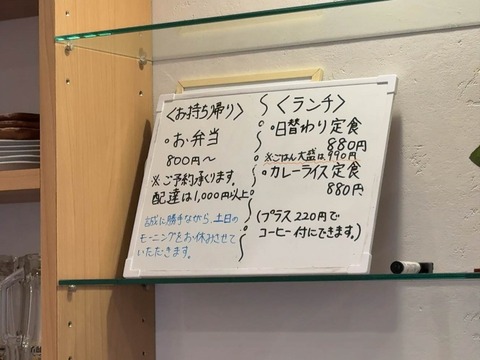 〈お持ち帰り〉
○お弁当
800円～
※ご予約承ります。
配達は1,000円以上
誠に勝手ながら、土日の
モーニングをお休みさせて
いただきます。
〈ランチ〉
○日替わり定食
880円
※ごはん大盛は990円
○カレーライス定食
880円
(プラス220円で
コーヒー付にできます。)